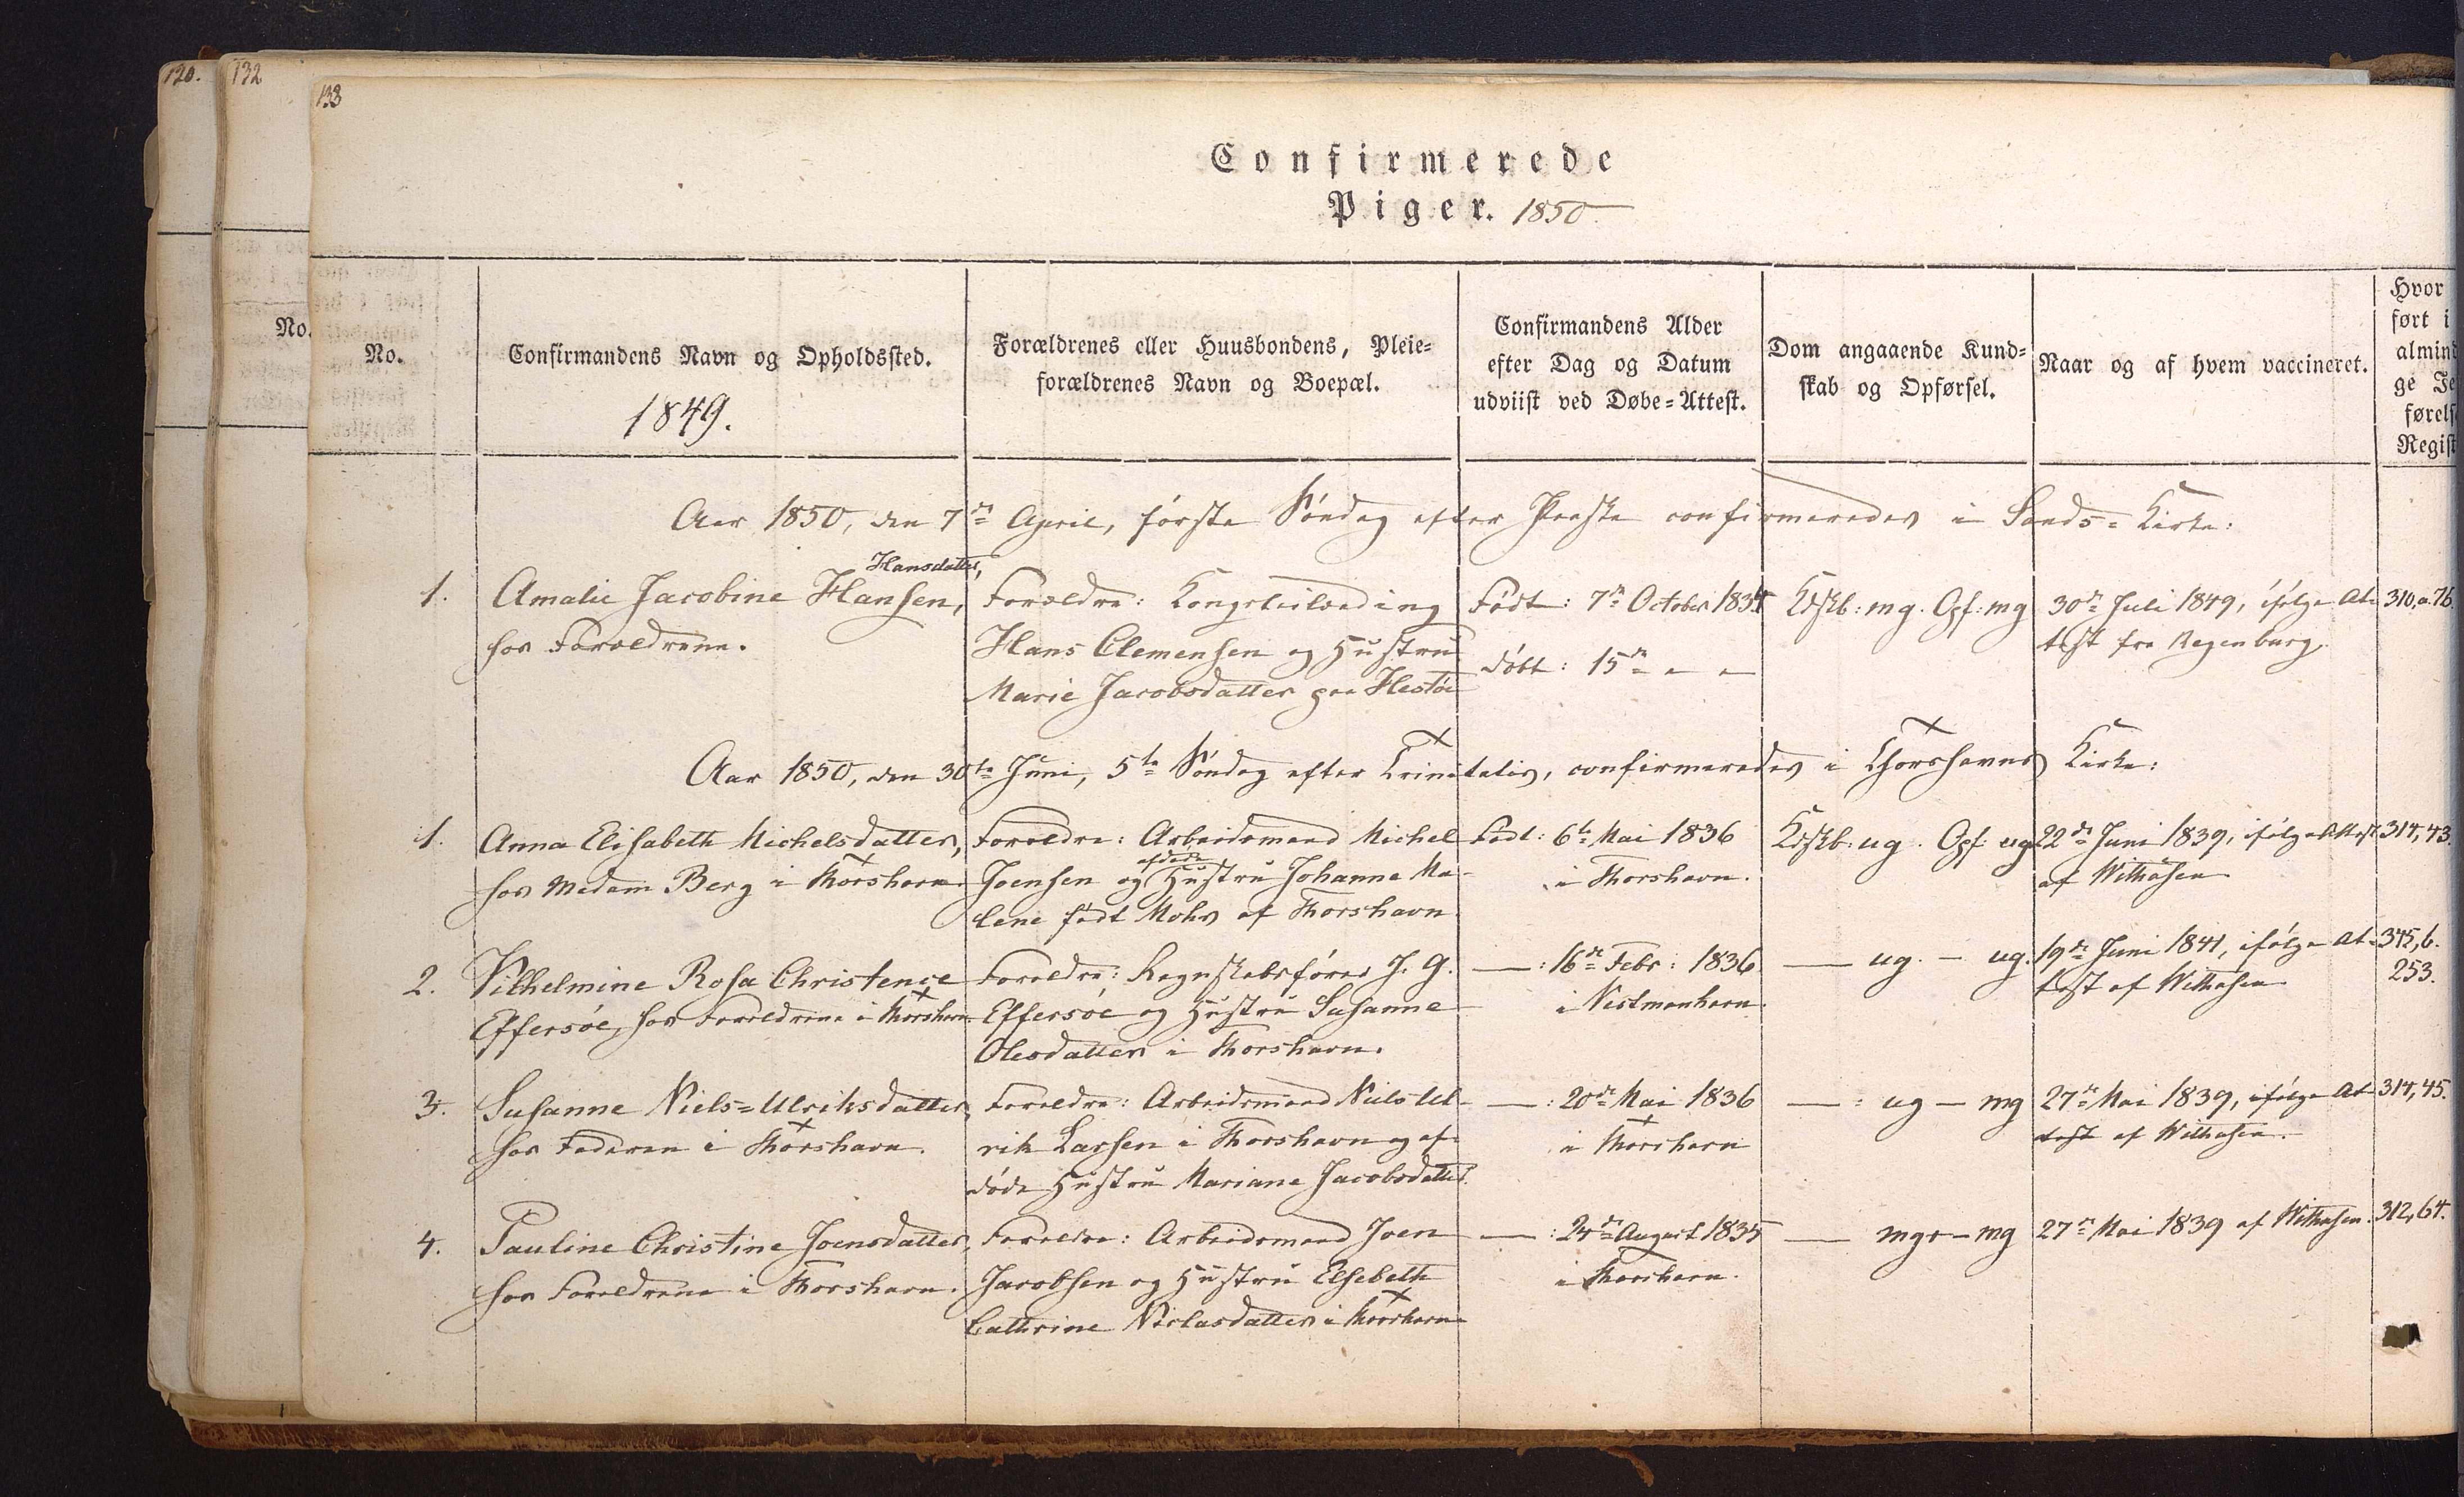 120.
132
133
Confirmerede
Piger. 1850
No.
No.
Confirmandens Navn og Opholdssted.
1849.
Forældrenes eller Huusbondens, Pleie=
forældrenes Navn og Boepæl.
Confirmandens Alder
efter Dag og Datum
udviist ved Døbe=Attest.
Dom angaaende Kund=
skab og Opførsel.
Naar og af hvem vaccineret.
Hvor
ført i
almind
ge Je
førels
Regist
Aar 1850, den 7de April, første Søndag efter Paaske confirmeredes i Sands=Kirke:
Hansdatter,
1. Amalie Jacobine Hansen,
hos Forældrene.
Forældre: Kongsleilænding
Hans Clemensen og Hustru
Marie Jacobsdatter paa Hestøe
Født: 7de October 1834
døbt: 15de " "
Kdskb: mg. Opf: mg
30te Juli 1849, ifølge At-
test fra Regenburg.
310.a.76.
Aar 1850, den 30te Juni, 5te Søndag efter Trinitatis, confirmeredes i Thorshavns Kirke:
1. Anna Elisabeth Michelsdatter,
hos Madam Berg i Thorshavn.
Forældre: Arbeidsmand Michel
Joensen og afdøde Hustru Johanne Ma-
lene født Mohr af Thorshavn
Født: 6te Mai 1836
i Thorshavn.
Kdskb. ug. Opf: ug
22de Juni 1839, ifølge Attest
af Withusen
314,43.
2. Vilhelmine Rosa Christence
Effersøe, hos Forældrene i Thorshavn.
Forældre: Regnskabsfører J. G.
Effersøe og Hustru Susanne
Olesdatter i Thorshavn.
— : 16de Febr: 1836
i Vestmanhavn.
— ug. — ug.
19de Juni 1841, ifølge At-
test af Withusen
345,6.
253.
3. Susanne Niels=Ulriksdatter,
hos Faderen i Thorshavn.
Forældre: Arbeidsmand Niels Ul-
rik Larsen i Thorshavn og af-
døde Hustru Mariane Jacobsdatter.
— : 20de Mai 1836
i Thorshavn
— : ug — mg
27de Mai 1839, ifølge At-
test af Withusen.
314,45.
4. Pauline Christine Joensdatter,
hos Forældrene i Thorshavn.
Forældre: Arbeidsmand Joen
Jacobsen og Hustru Elsebeth
Cathrine Niclasdatter i Thorshavn
— : 24de August 1835
i Thorshavn.
— mg+ — mg
27de Mai 1839 af Withusen.
312,64.